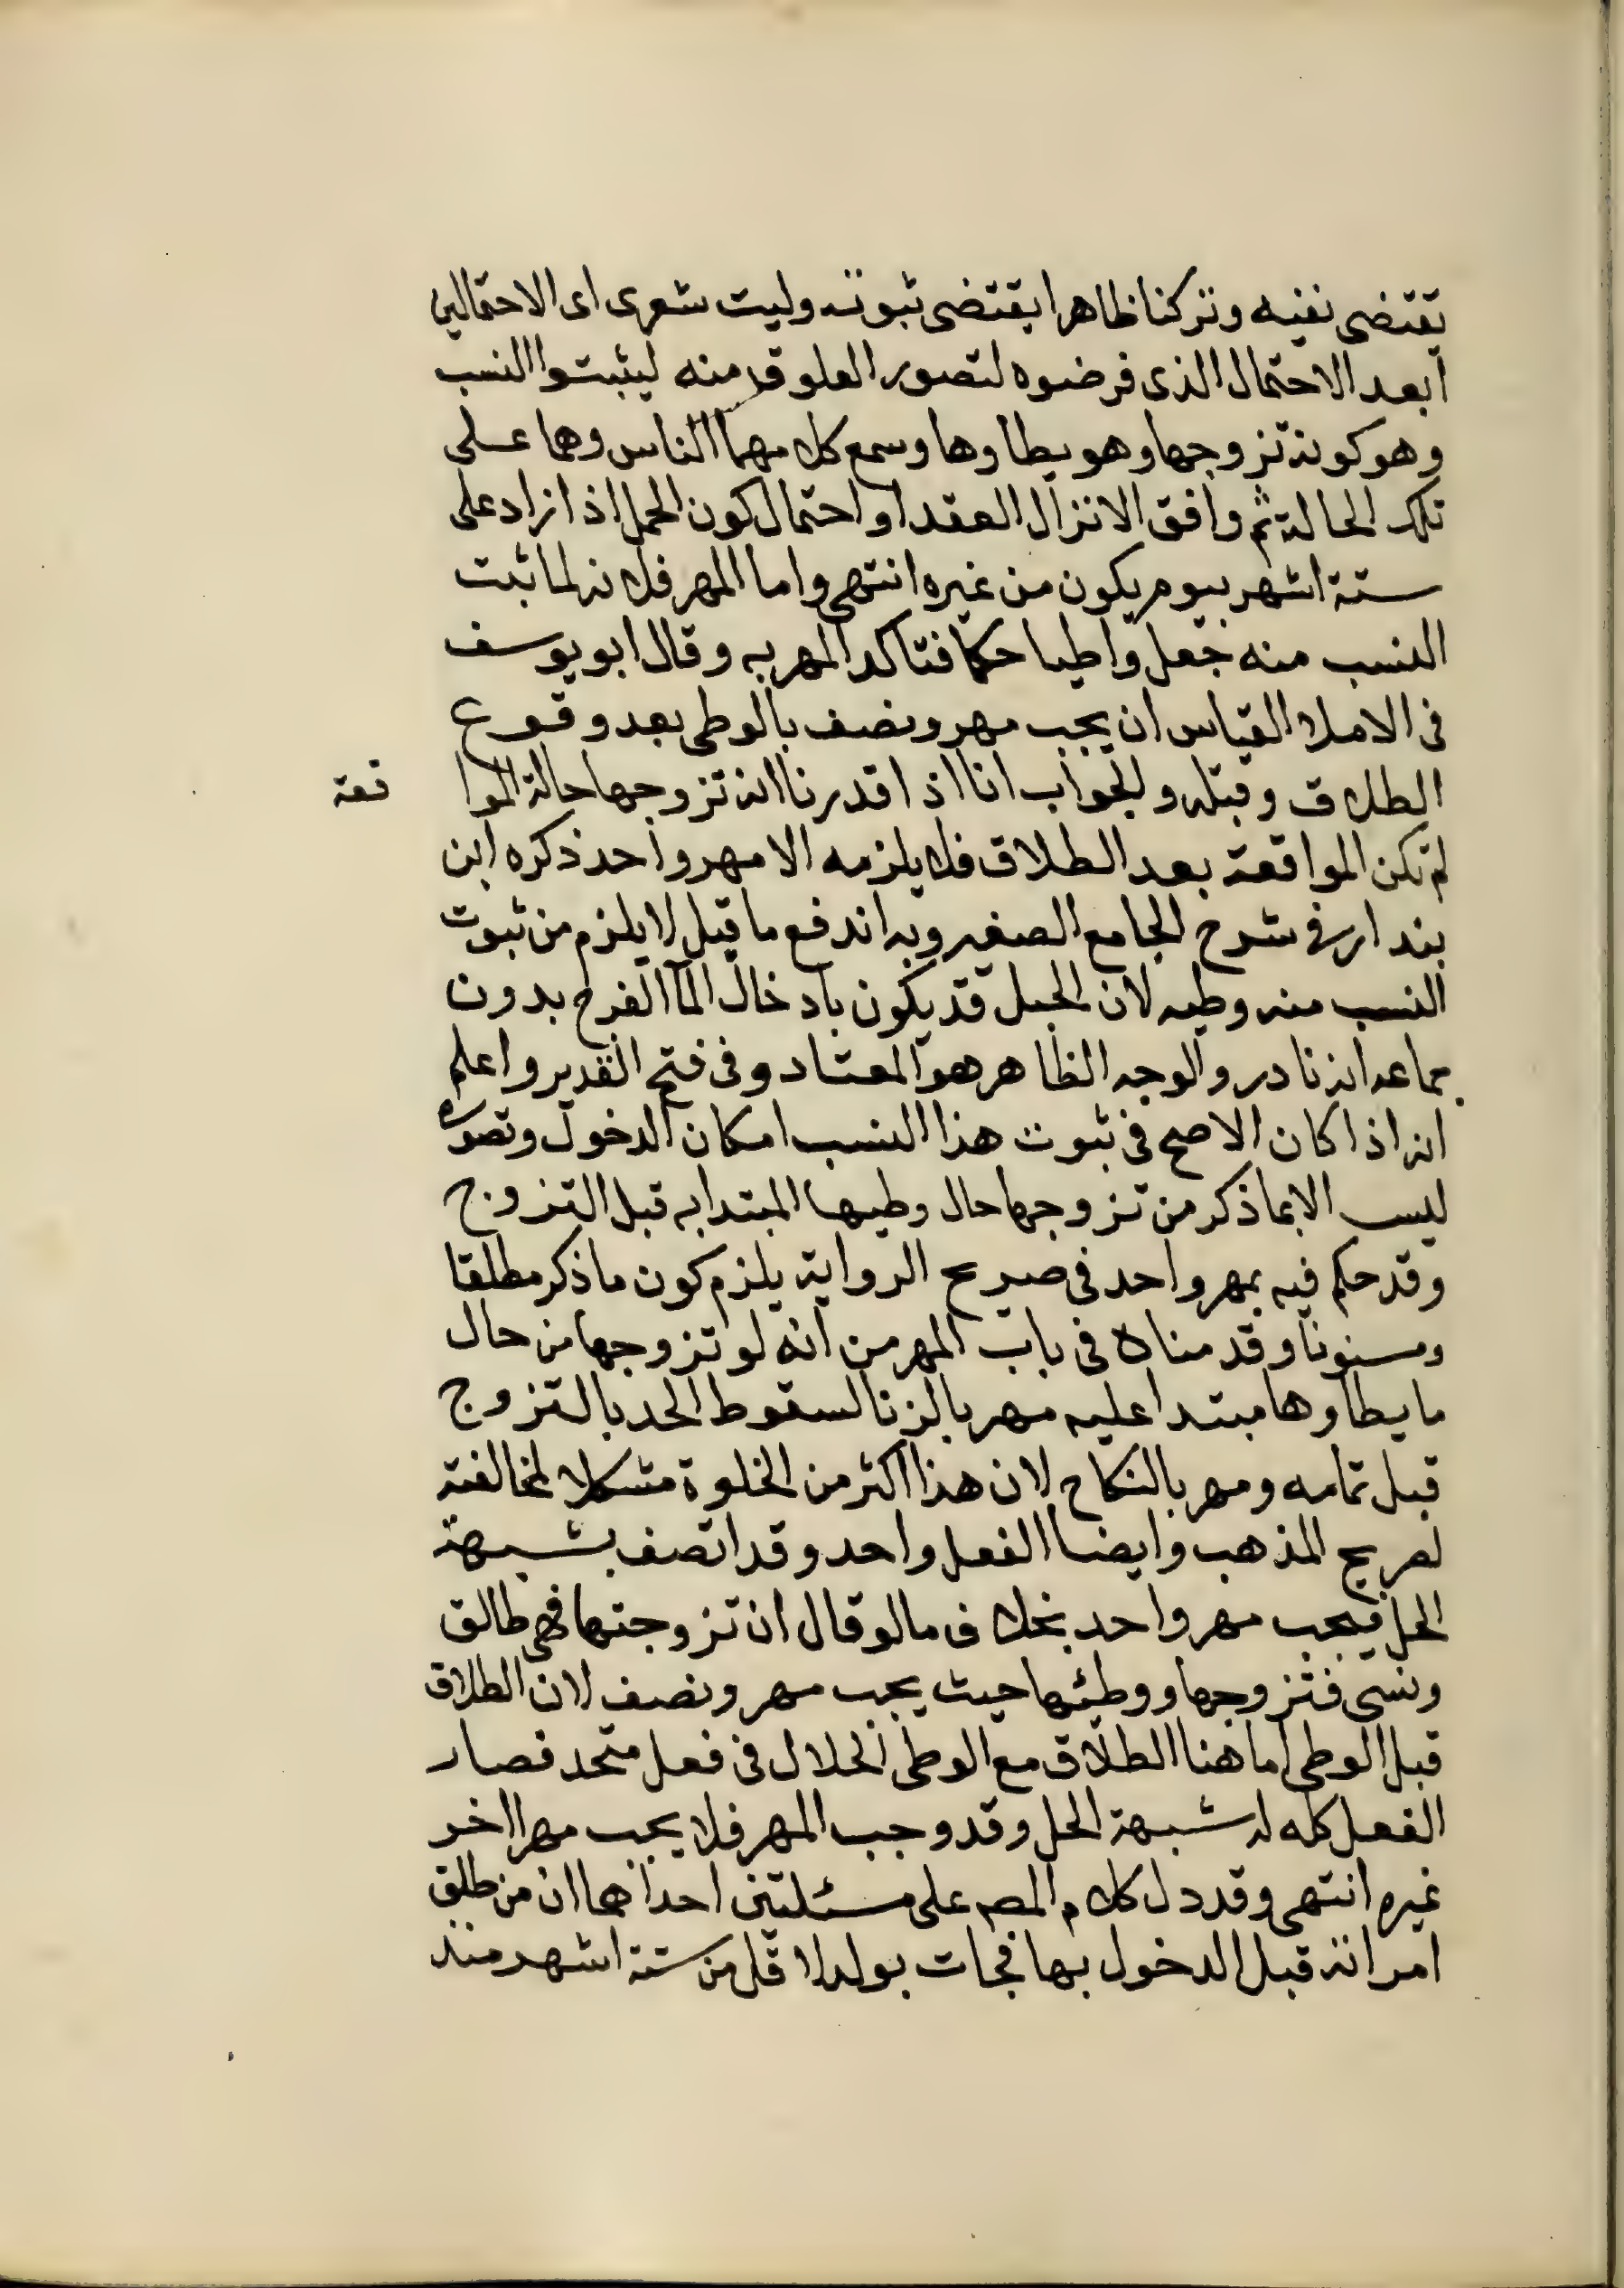 يقتضى نفيه وتركنا ظاهرا يقتضى ثبوته وليت شعرى اى الاحتمالين
ابعد الاحتمال الذى فرضوه لتصور العلوق منه ليثبتوا النسب
وهو كونه تزوجها وهو يطاوها وسمع كلامهما الناس وهما على
تلك الحالة ثم وافق الانزال العقد او احتمال كون الحمل اذا زاد على
ستة اشهر بيوم يكون من غيره انتهى واما المهر فلانه لما ثبت
النسب منه جعل واطيا حكما فتاكد المهر به وقال ابو يوسف
فى الاملاء القياس ان يجب مهر ونصف بالوطى بعد وقوع
الطلاق وقبله والجواب انا اذا قدرنا انه تزوجها حالة الموا قعة
لم تكن المواقعة بعد الطلاق فلا يلزمه الا مهر واحد ذكره ابن
بندار فى شرح الجامع الصغير وبه اندفع ما قيل لا يلزم من ثبوت
النسب منه وطيه لان الحبل قد يكون بادخال الما الفرج بدون
جماعه انه نادر والوجه الظاهر هو المعتاد وفى فتح القدير واعلم
انه اذا كان الاصح فى ثبوت هذا النسب امكان الدخول وتصوره
ليس الا بما ذكر من تزوجها حال وطيها المبتدا به قبل التزوج
وقد حكم فيه بمهر واحد فى صريح الرواية يلزم كون ما ذكر مطلقا
ومسنونا وقدمناه فى باب المهر من انه لو تزوجها من حال
ما يطاوها مبتدا عليه مهر بالزنا لسقوط الحد بالتزوج
قبل تمامه ومهر بالنكاح لان هذا اكثر من الخلوة مشكلا لمخالفته
لصريح المذهب وايضا الفعل واحد وقد اتصف بشبهة
الحل فيجب مهر واحد بخلاف ما لو قال ان تزوجتها فهى طالق
ونسى فتزوجها ووطئها حيث يجب مهر ونصف لان الطلاق
قبل الوطى اما هنا الطلاق مع الوطى الحلال فى فعل متحد فصار
الفعل كله له شبهة الحل وقد وجب المهر فلا يجب مهرا اخر
غيره انتهى وقد دل كلام المص على مسئلتين احداهما ان من طلق
امراته قبل الدخول بها فجات بولد لاقل من ستة اشهر منذ